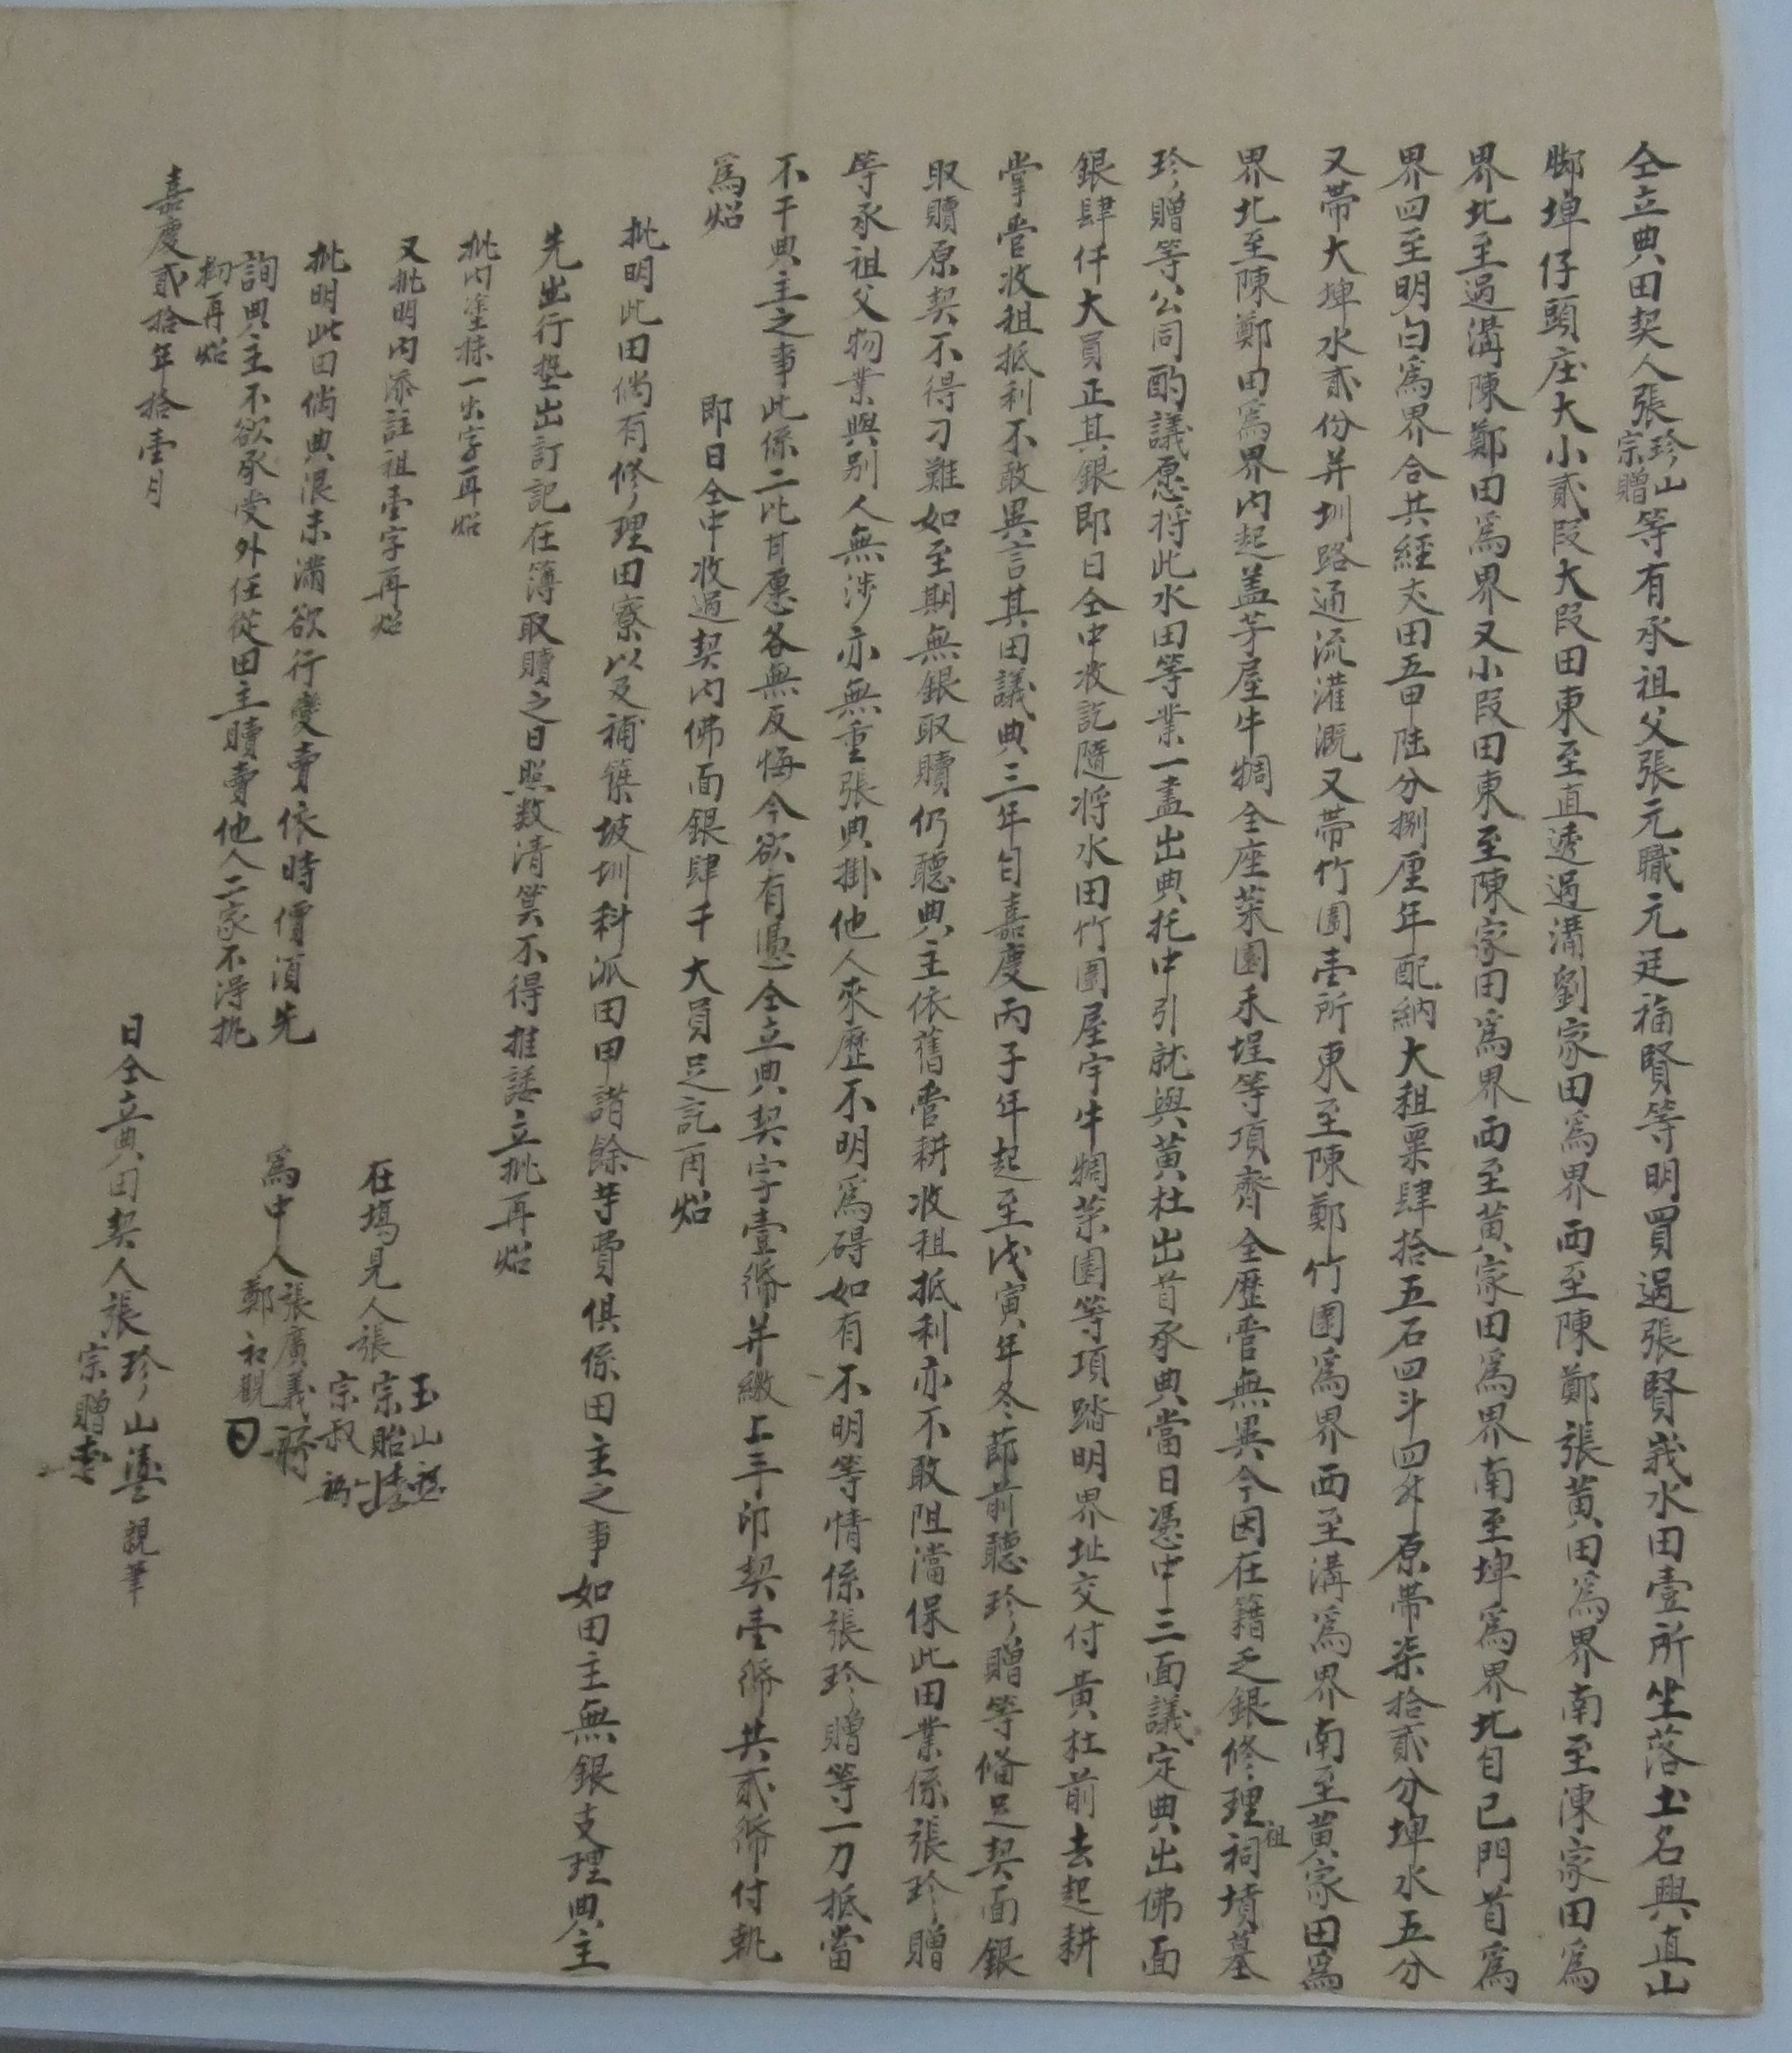 仝立典田契人張珍山宗贈等有承祖父張元職元廷福賢等明買過張賢我水田壹所坐落土名興直山
脚埤仔頭庄大小貳段大段田東至直透過溝劉家田為界西至陳鄭張黃田為界南至陳家田為
界北至過溝陳鄭田為界又小段田東至陳家田為界西至黃家田為界南至埤為界北自己門首為
界四至明白為界合共經丈田五甲陆分捌厘年配納大租粟肆拾五石四斗四升原帶柒拾貳分埤水五分
又帶大埤水貳份并圳路通流灌溉又帶竹圍壹所東至陳鄭竹圍為界西至溝為界南至黃家田為
界北至陳鄭田為界内起盖茅屋牛椆全座菜園禾埕等項齊全歷管無異今因在籍乏銀修理祖祠墳墓
珍贈等公同酌議愿将此水田等業一盡出典托中引就與黃杜出首承典當日憑中三面議定典出佛面
銀肆仟大員正其銀即日仝中收訖隨将水田竹圍屋宇牛椆菜園等項踏明界址交付黃杜前去起耕
掌管收租抵利不敢異言其田議典三年自嘉慶丙子年起至戊寅年冬節前聽珍贈等備足契面銀
取贖原契不得刁難如至期無銀取贖仍聽典主依舊管耕收租抵利亦不敢阻當保此田業係張珍贈
等承祖父物業與别人無涉亦無重張典掛他人來歷不明為碍如有不明等情係張珍贈等一力抵當
不干典主之事此係二比甘愿各無反悔今欲有憑仝立典契字壹𢃇并繳上手印契壹𢃇共貳𢃇付執
為炤
即日仝中收過契内佛面銀肆千大員足訖再炤
批明此田倘有修理田寮以及補築坡圳科派田甲諸餘等費俱係田主之事如田主無銀支理典主
先出行墊出訂記在簿取贖之日照数清筭不得推諉立批再炤
批内塗抹一出字再炤
又批明内添註祖壹字再炤
批明此田倘典限未滿欲行變賣依時價須先
詢典主不欲承受外任從田主贖賣他人二家不得挑
拗再炤
在塲見人張玉山宗貽宗叔
為中人張廣義鄭初觀
嘉慶貳拾年拾壹月
日仝立典田契人張珍山宗贈親筆